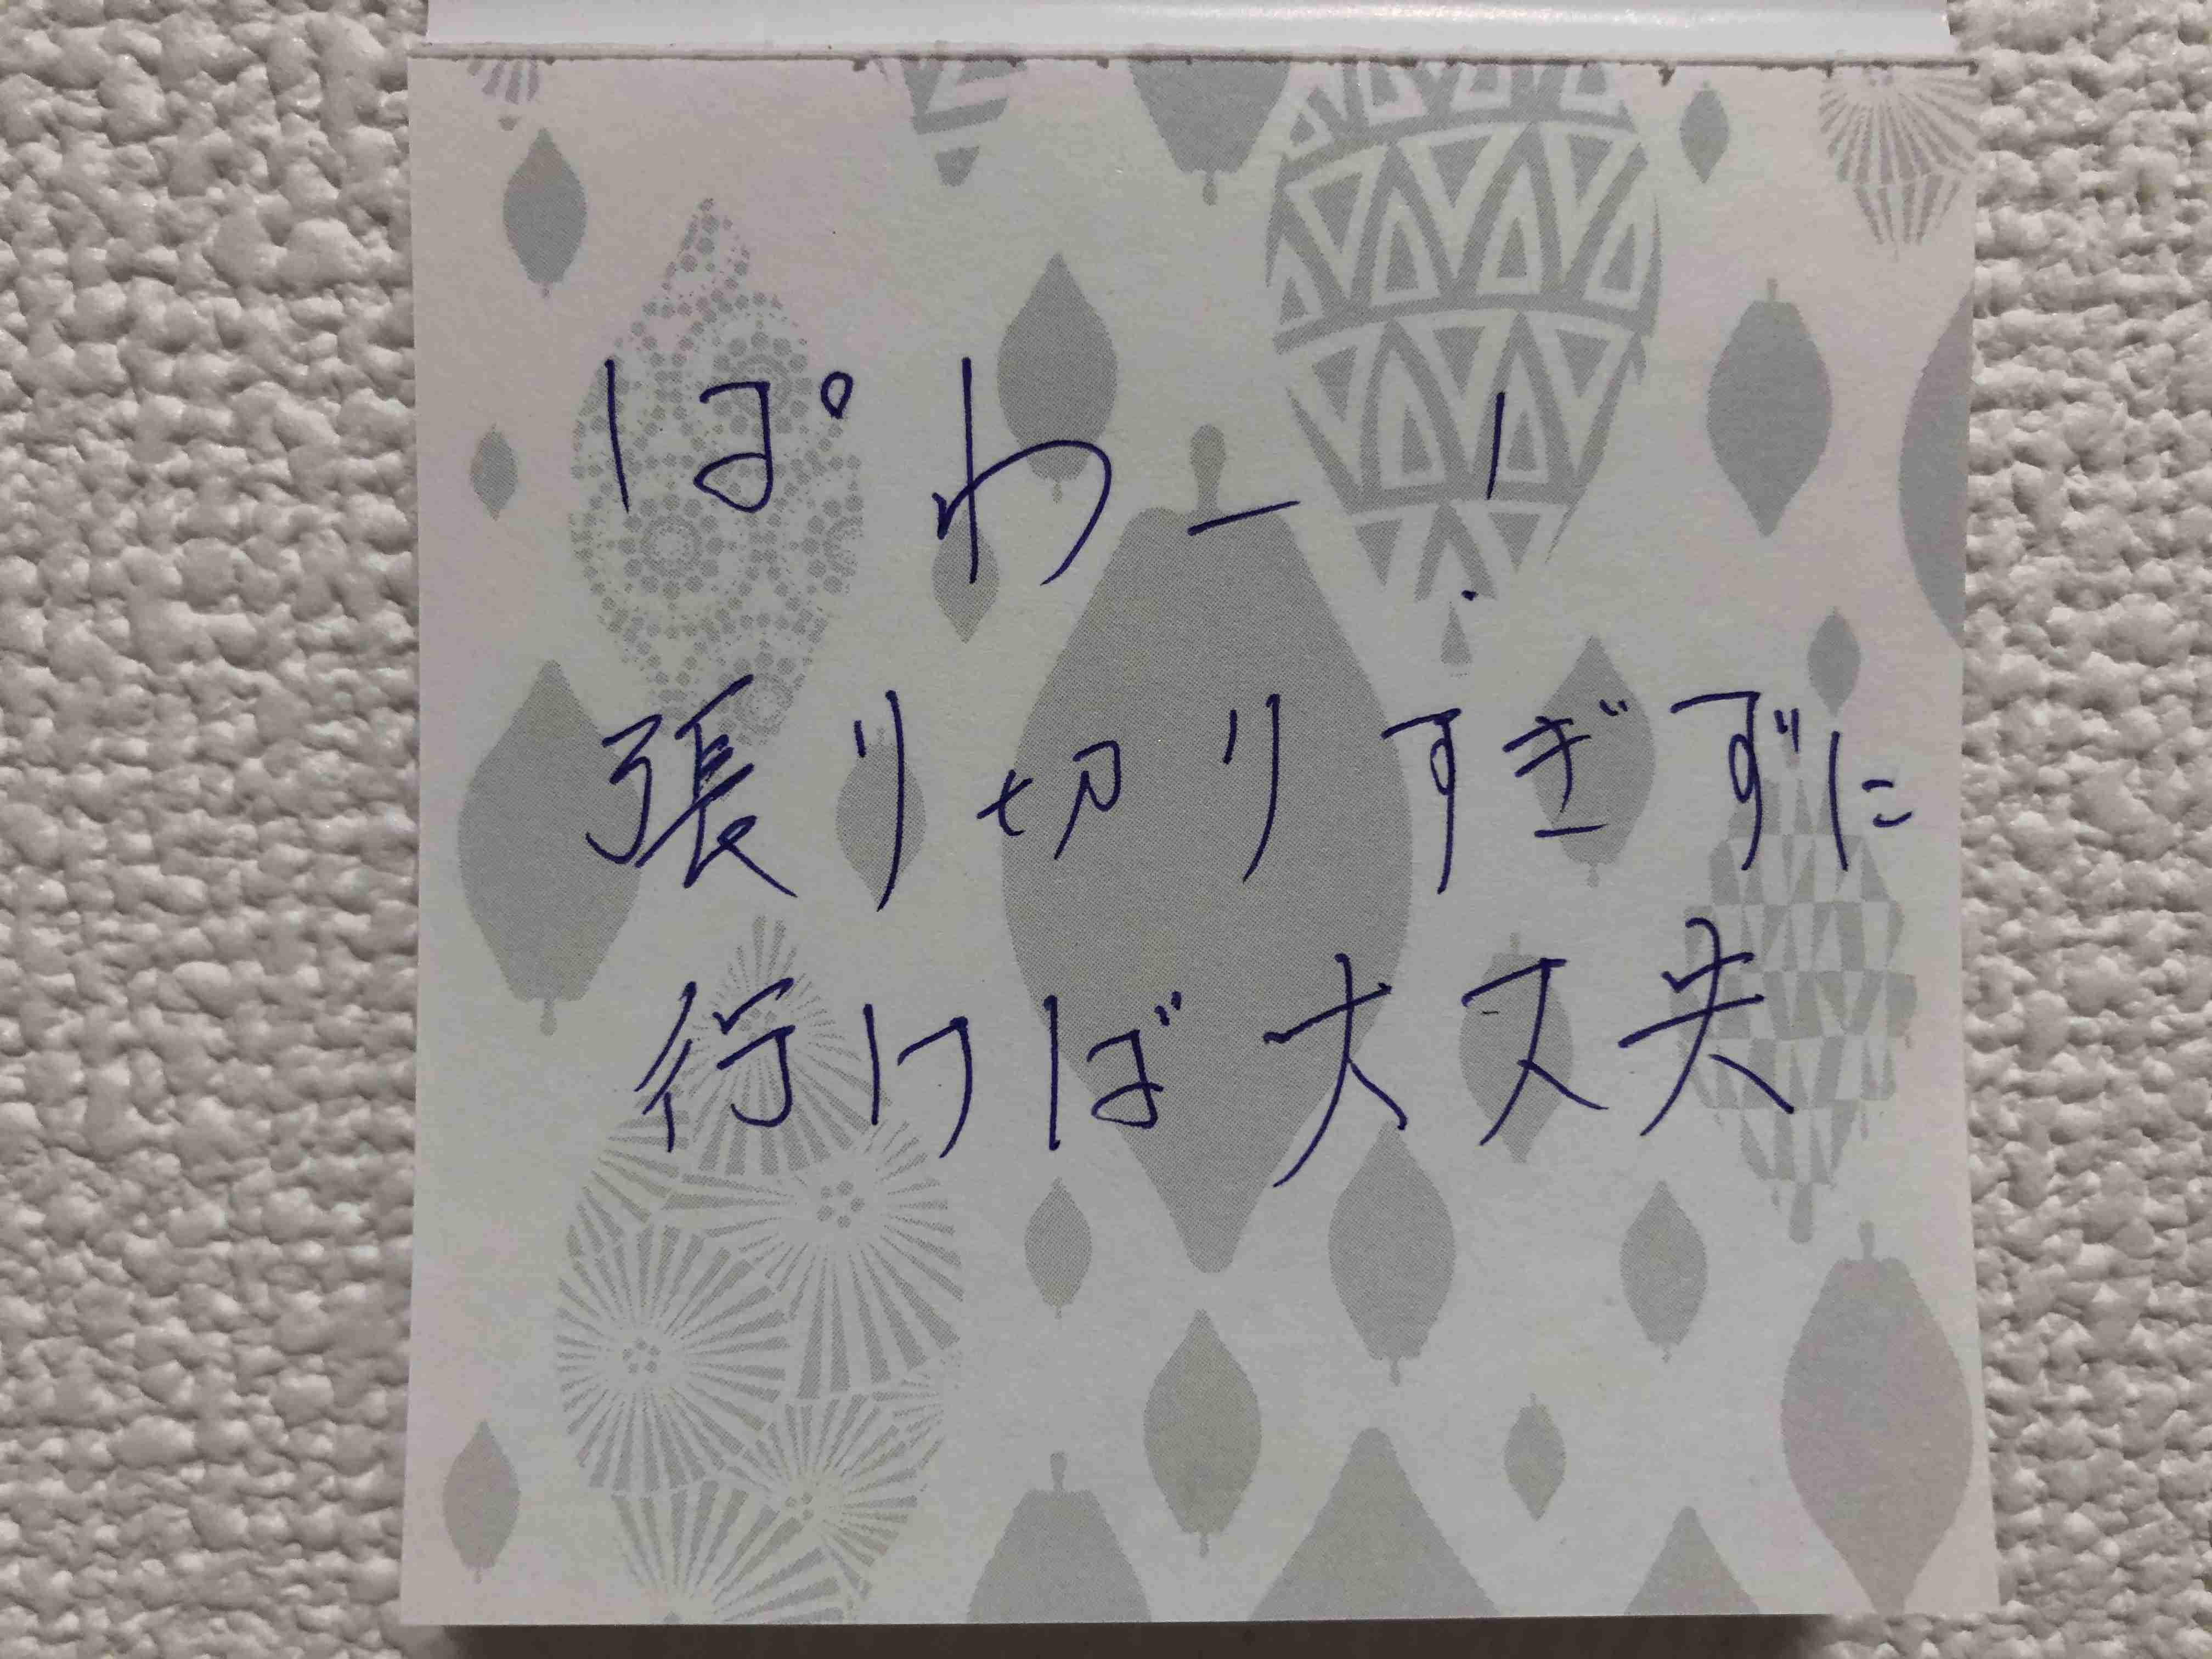 ぱわー!
張り切りすぎずに
行けば大丈夫